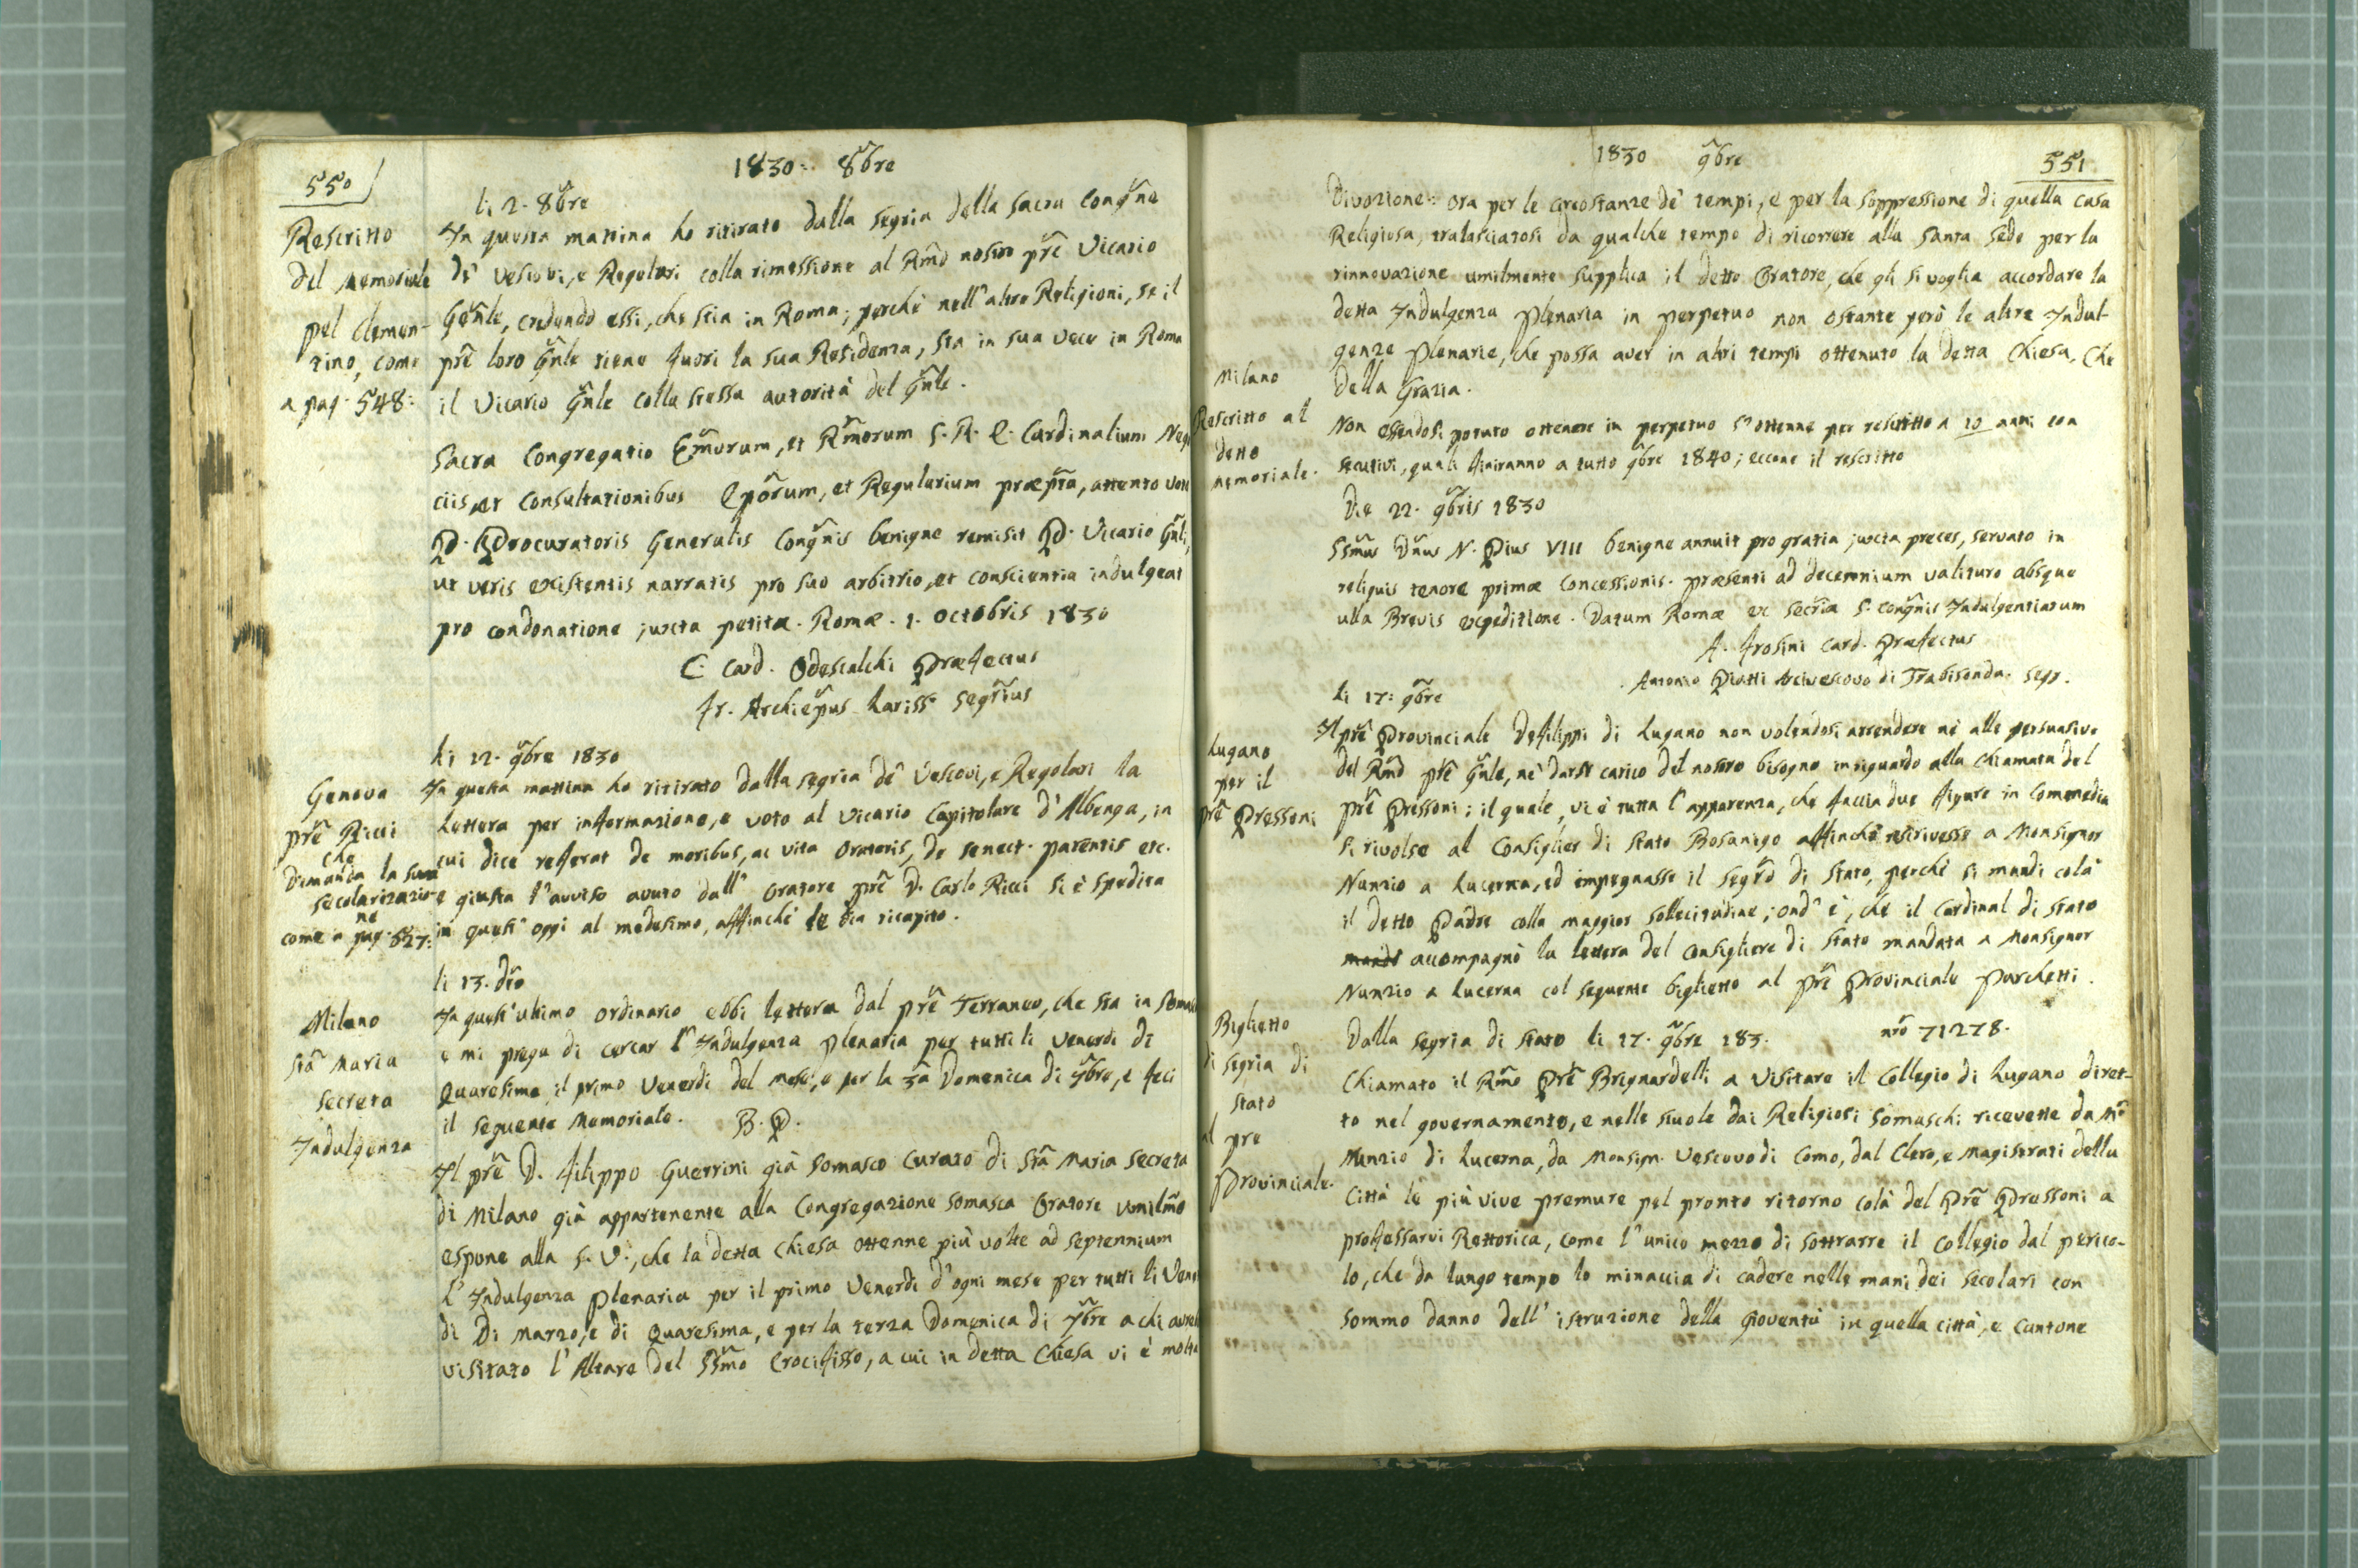 550
1830: 8bre
li 2. 8bre
Rescritto
del Memoriale
pel Clemen-
tino, come
a pag. 548:
In questa mattina ho ritirato dalla Segria della Sacra Congne
de' Vescovi, e Regolari colla rimessione al Rmo nostro pre Vicario
Genle, credendo essi, che stia in Roma; perchè nell'altre Religioni, se il
pre loro Gnle tiene fuori la sua Residenza, sta in sua vece in Roma
il Vicario Gnle colla stessa autorità del Gnle.
Sacra Congregatio Emorum, et Rmorum S. R. E. Cardinalium Nego
ciis, et Consultationibus Eporum, et Regularium præpta, attento voto
P. Procuratoris Generalis Congnis benigne remisit P. Vicario Gnli,
ut veris existentis narratis pro suo arbitrio, et conscientia indulgeat
pro condonatione juxta petita. Romæ. 1. Octobris 1830
C. Card. Odescalchi Præfectus
Jr. Archiepus Lariss. Segrius
li 12. 9bre 1830
Genova
pre Ricci
che
dimanda la sua
secolarizazio-
ne
come a pag. 527:
In questa mattina ho ritirato dalla segria de' Vescovi, e Regolari la
Lettera per informazione, e voto al Vicario Capitolare d'Albenga, in
cui dice referat de moribus, ac vita Oratoris, de senect. parentis etc.
e giusta l'avviso avuto dall' Oratore pre D. Carlo Ricci si è spedita
in quest' oggi al medesimo, affinchè le dia ricapito.
li 13. dto
Milano
Sta Maria
Secreta
Indulgenza
In quest'ultimo ordinario ebbi lettera dal pre Terraneo, che sta in Somas
e mi prega di cercar l'Indulgenza plenaria per tutti li Venerdi di
Quaresima, il primo Venerdi del mese, e per la 3a Domenica di 7bre, e feci
il seguente Memoriale. B. P.
Il pre D. Filippo Guerrini già Somasco Curato di Sta Maria Secreta
di Milano già appartenente alla Congregazione Somasca Oratore umilmo
espone alla S. V., che la detta Chiesa ottenne più volte ad septennium
l'Indulgenza Plenaria per il primo Venerdi d'ogni mese per tutti li Vener
di di Marzo, e di Quaresima, e per la terza Domenica di 7bre a chi avrà
visitato l'Altare del SSmo Crocifisso, a cui in detta Chiesa vi è molta
1830 9bre
551
Divozione: ora per le circostanze de' tempi, e per la soppressione di quella casa
Religiosa, tralasciatosi da qualche tempo di ricorrere alla Santa Sede per la
rinnovazione umilmente supplica il detto Oratore, che gli si voglia accordare la
detta Indulgenza Plenaria in perpetuo non ostante però le altre Indul-
genze Plenarie, che possa aver in altri tempi ottenuto la detta Chiesa. Che
della Grazia.
Milano
Rescritto al
detto
Memoriale.
Non essendosi potuto ottenere in perpetuo s'ottenne per rescritto a 10 anni con
secutivi, quali finiranno a tutto 9bre 1840; eccone il rescritto
Die 22. 9bris 1830
SSmus Dnus N. Pius VIII benigne annuit pro gratia juxta preces, servato in
reliquis tenore primæ Concessionis. præsenti ad decennium valituro absque
ulla Brevis expeditione. Datum Romæ ex Secria S. Congnis Indulgentiarum
A. Frosini Card. Præfectus
Antonio Piatti Arcivescovo di Trabisonda. Segr.
li 17: 9bre
Lugano
per il
pre Pressoni
Il pre Provinciale Defilippi di Lugano non volendosi arrendere nè alle persuasive
del Rmo pre Gnle, nè darsi carico del nostro bisogno in riguardo alla chiamata del
pre Pressoni; il quale, vi è tutta l'apparenza, che faccia due figure in Commedia
si rivolse al Consiglier di Stato Bosanigo affinchè riscrivesse a Monsignor
Nunzio a Lucerna, ed impegnasse il Segro di Stato, perchè si mandi colà
il detto Padre colla maggior sollecitudine; ond'è, che il Cardinal di Stato
mandò accompagnò la lettera del Consigliere di Stato mandata a Monsignor
Nunzio a Lucerna col seguente biglietto al pre Provinciale Parchetti.
Biglietto
di Segria di
Stato
al pre
Provinciale.
Dalla Segria di Stato li 17. 9bre 183. nro 71278.
Chiamato il Rmo Pre Brignardelli a visitare il Collegio di Lugano diret-
to nel governamento, e nelle scuole dai Religiosi Somaschi ricevette da Mr
Nunzio di Lucerna, da Monsign. Vescovo di Como, dal Clero, e Magistrati della
Città le più vive premure pel pronto ritorno colà del Pre Pressoni a
professarvi Rettorica, come l'unico mezzo di sottrarre il Collegio dal perico-
lo, che da lungo tempo lo minaccia di cadere nelle mani dei secolari con
sommo danno dell'istruzione della gioventù in quella città, e Cantone